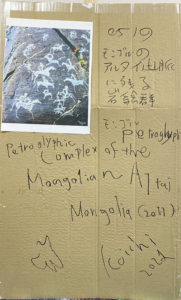 es10
モンゴルの
アルタイ山脈
に残る
岩絵群
モンゴル Petroglyph
Petroglyphic
Complex of the
Mongolian Altai
Mongolia (2011)
Koichi
2022